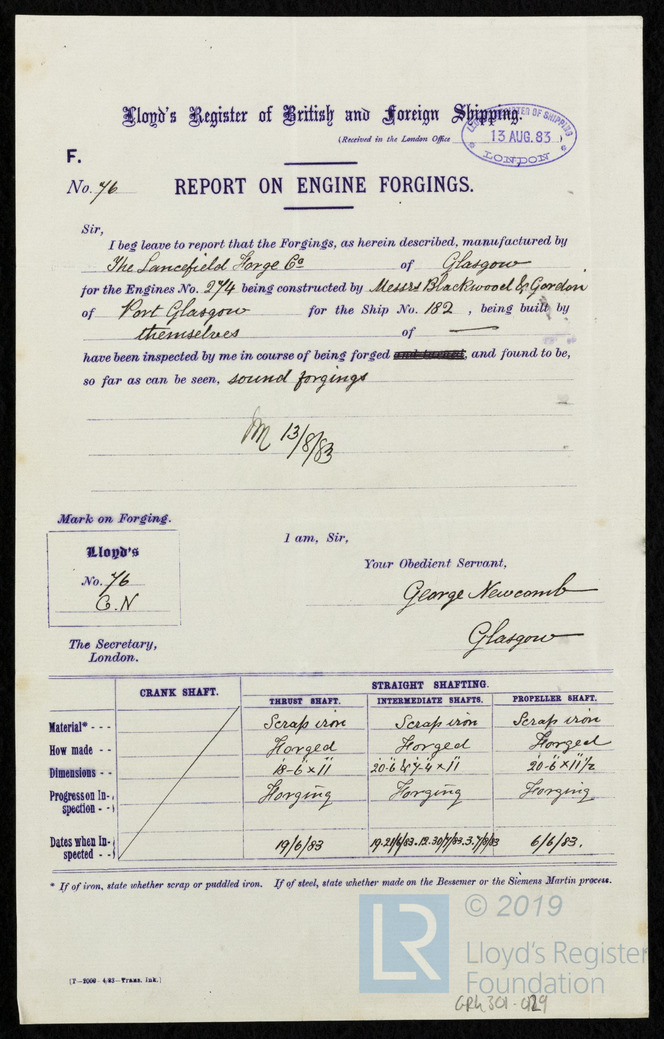 Lloyd's Register of British and Foreign Shipping.
(Received in the London Office
LLOYD'S REGISTER OF SHIPPING
13 AUG. 83
LONDON
F.
No. 76
REPORT ON ENGINE FORGINGS.
Sir,
I beg leave to report that the Forgings, as herein described, manufactured by
The Lancefield Forge Co of Glasgow
for the Engines No. 274 being constructed by Messrs Blackwood & Gordon
of Port Glasgow for the Ship No. 182, being built by
themselves of —
have been inspected by me in course of being forged and turned, and found to be,
so far as can be seen, sound forgings
13/8/83
Mark on Forging.
Lloyd's
No. 76
G.N
I am, Sir,
Your Obedient Servant,
George Newcomb
Glasgow
The Secretary,
London.
CRANK SHAFT.
STRAIGHT SHAFTING.
THRUST SHAFT. INTERMEDIATE SHAFTS. PROPELLER SHAFT.
Material* - - - Scrap iron Scrap iron Scrap iron
How made - - Forged Forged Forged
Dimensions - - 18-6" x 11" 20-6" & 7-4" x 11" 20-6" x 11 1/2
Progress on In-
spection - - Forging Forging Forging
Dates when In-
spected - - 19/6/83 19-21/6/83-12.30/7/83.3.7/8/83 6/6/83.
* If of iron, state whether scrap or puddled iron. If of steel, state whether made on the Bessemer or the Siemens Martin process.
LR
© 2019
Lloyd's Register
Foundation
[T—2000—4/83—Trans. Ink.]
GRG301-029